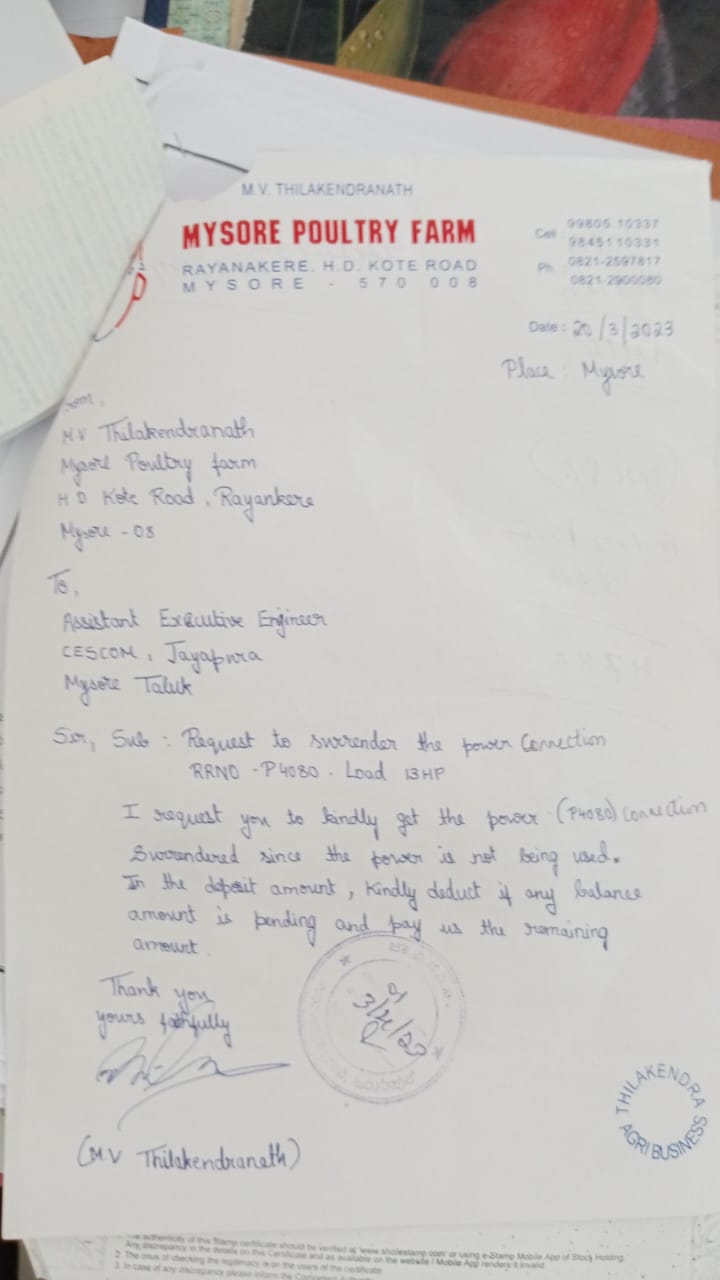 M.V. THILAKENDRANATH
MYSORE POULTRY FARM
RAYANAKERE. H.D. KOTE ROAD
MYSORE - 570 008
Cell 99805 10337
98451 10331
Ph. 0821-2597817
0821-2900080
Date : 20/3/2023
Place : Mysore
MV Thilakendranath
Mysore Poultry farm
H D Kote Road, Rayankere
Mysore - 08
To,
Assistant Executive Engineer
CESCOM, Jayapura
Mysore Taluk
Sir, Sub : Request to surrender the power Connection
RRNO - P4080 - Load 13HP
I request you to kindly get the power (P4080) Connection
Surrendered since the power is not being used.
In the deposit amount, kindly deduct if any balance
amount is pending and pay us the remaining
amount.
Thank you
yours faithfully
(M.V Thilakendranath)
THILAKENDRA
AGRI BUSINESS
authenticity of this Stamp certificate should be verified at 'www.shcilestamp.com' or using e-Stamp Mobile App of Stock Holding.
Any discrepancy in the details on this Certificate and as available on the website / Mobile App renders it invalid.
2. The onus of checking the legitimacy is on the users of the certificate.
3. In case of any discrepancy please inform the Competent